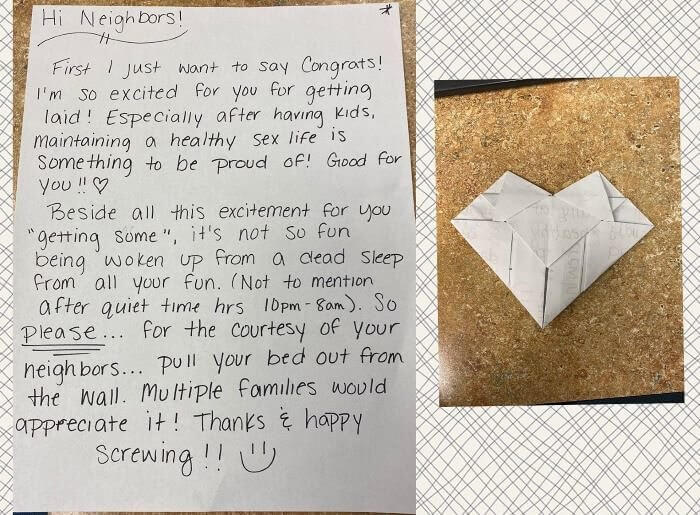 Hi Neighbors! *
First I just want to say Congrats!
I'm so excited for you for getting
laid! Especially after having kids,
maintaining a healthy sex life is
something to be proud of! Good for
you!! ♡
Beside all this excitement for you
"getting some", it's not so fun
being woken up from a dead sleep
from all your fun. (Not to mention
after quiet time hrs 10pm-8am). So
please... for the courtesy of your
neighbors... pull your bed out from
the wall. Multiple families would
appreciate it! Thanks & happy
screwing!! :)